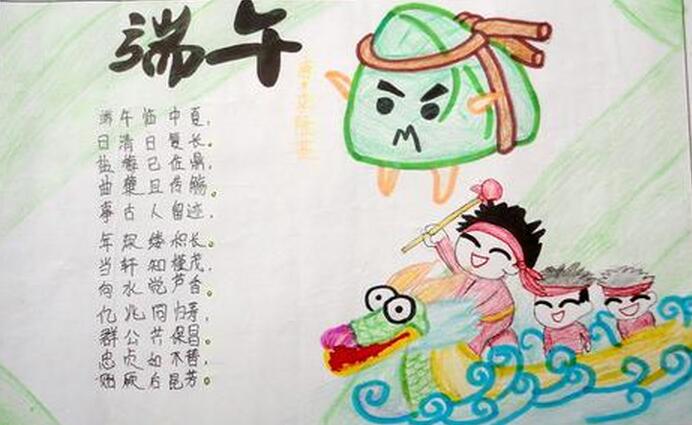 端午
端午临中夏,
日清日复长。
盐梅已佐鼎,
曲糵且传觞。
事古人留迹,
年深缕积长。
当轩知槿茂,
向水觉芦香。
亿兆同归寿,
群公共保昌。
忠贞如不替,
贻厥后昆芳。